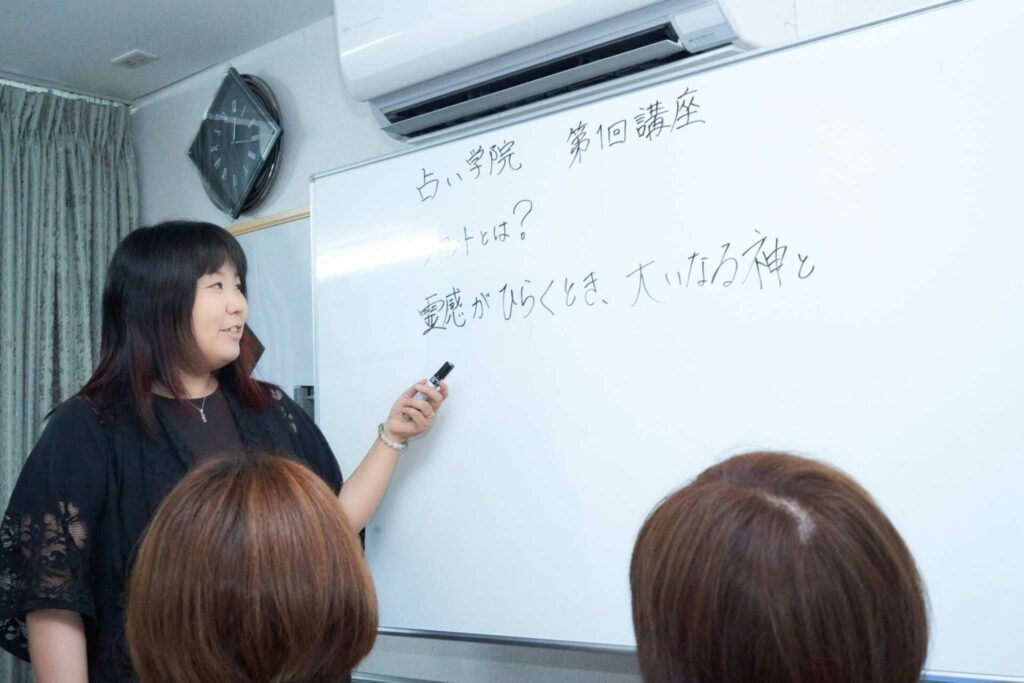 占い学院 第1回講座
とは?
霊感がひらくとき、大いなる神と